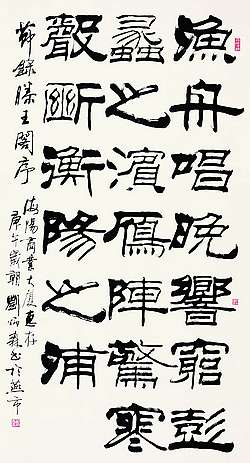 漁舟唱晚響窮彭
蠡之濱鴈陣驚寒
聲斷衡陽之浦
節錄滕王閣序
海陽商業大厦惠存
庚午歲朝劉炳森书於燕市